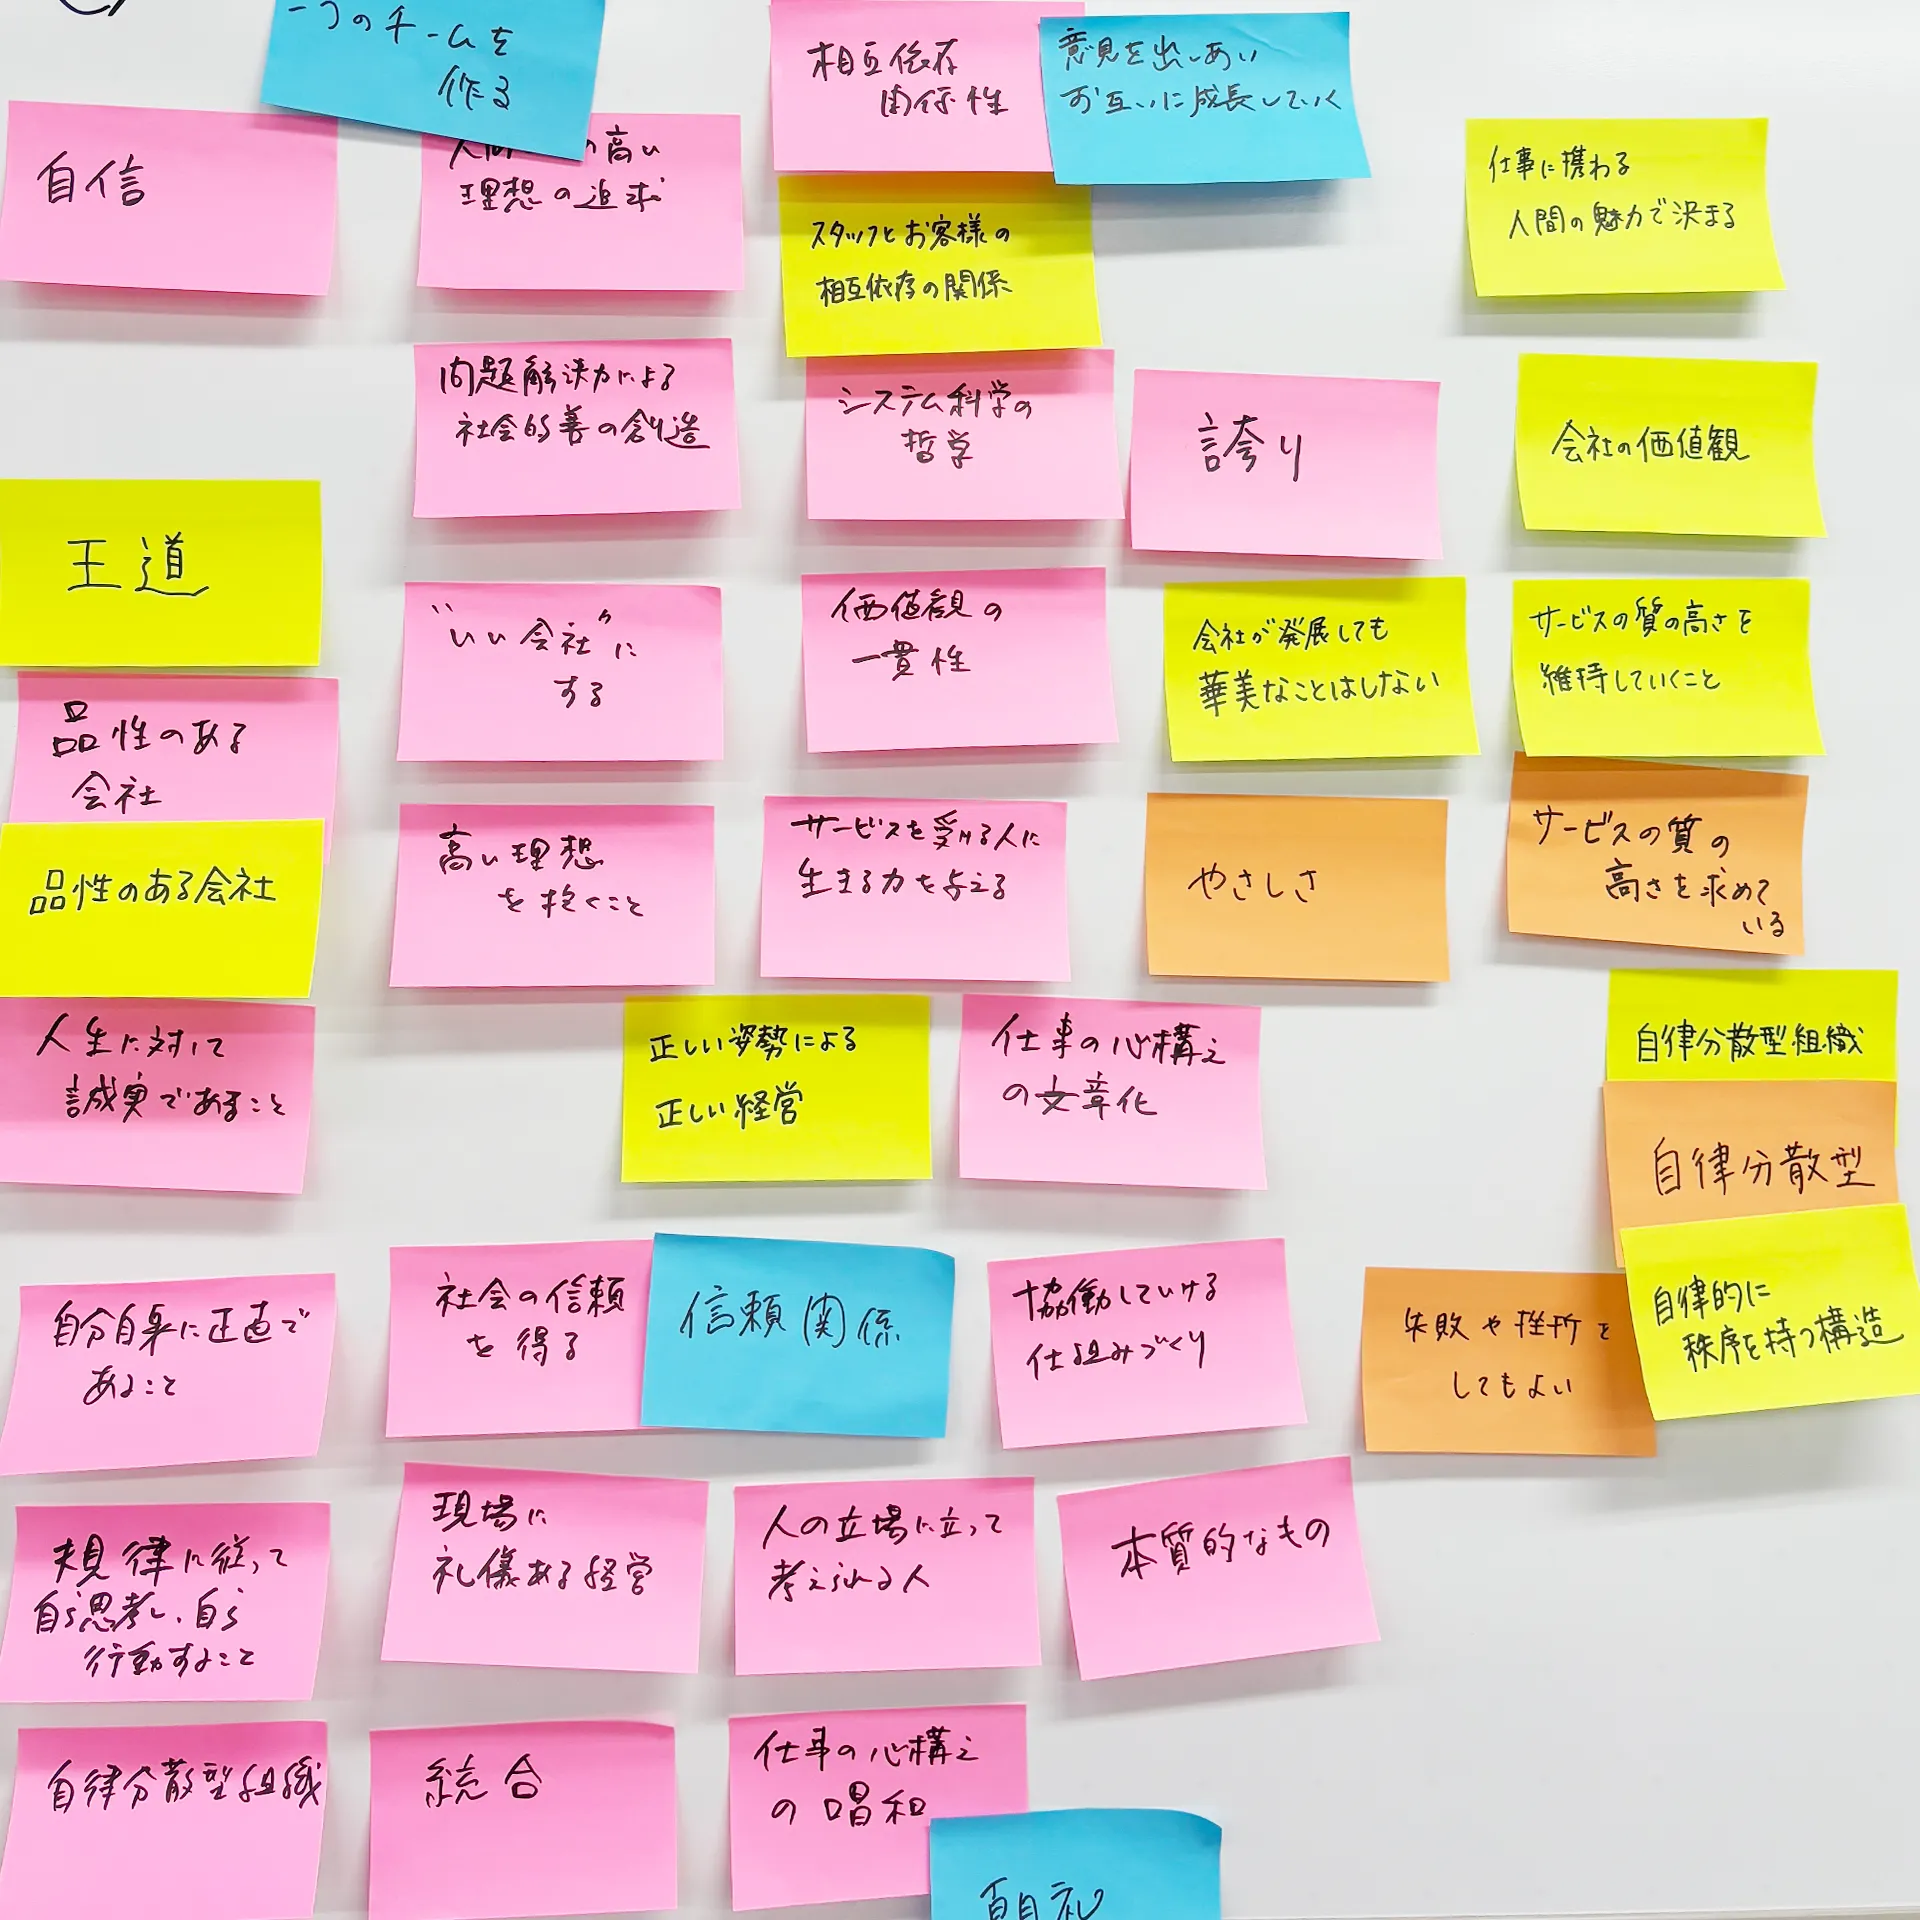 一つのチームを
作る
相互依存
関係性
意見を出しあい
お互いに成長していく
自信
の高い
理想の追求
スタッフとお客様の
相互依存の関係
仕事に携わる
人間の魅力で決まる
問題解決力による
社会的善の創造
システム科学の
哲学
誇り
会社の価値観
王道
"いい会社"に
する
価値観の
一貫性
会社が発展しても
華美なことはしない
サービスの質の高さを
維持していくこと
品性のある
会社
品性のある会社
高い理想
を抱くこと
サービスを受ける人に
生きる力を与える
やさしさ
サービスの質の
高さを求めて
いる
人生に対して
誠実であること
正しい姿勢による
正しい経営
仕事の心構え
の文章化
自律分散型組織
自律分散型
自律的に
秩序を持つ構造
自分自身に正直で
あること
社会の信頼
を得る
信頼関係
協働していける
仕組みづくり
失敗や挫折を
してもよい
規律に従って
自ら思考し、自ら
行動すること
現場に
礼儀ある経営
人の立場に立って
考えられる人
本質的なもの
自律分散型組織
統合
仕事の心構え
の唱和
朝礼